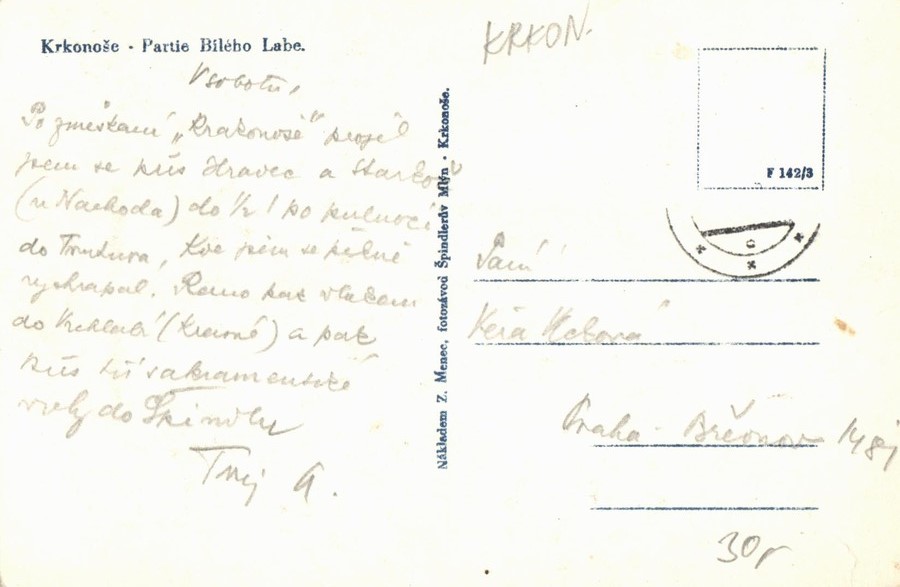 Krkonoše - Partie Bílého Labe.
KRKON.
V sobotu,
Po zmeškání „Krakonoše" projel
jsem se přes Hravec a Starkov
(u Nachoda) do 1/2 1 po pulnoci
do Trutnova, kde jsem se pěkně
vychrapal. Ramo pak vlakem
do Vrchlabí (krásné) a pak
přes sakramentské
vrchy do Špindlu
Tvůj A.
Nákladem Z. Menec, fotozávod Špindlerův Mlýn - Krkonoše.
F 142/3
Paní
Praha - Břevnov
30,-